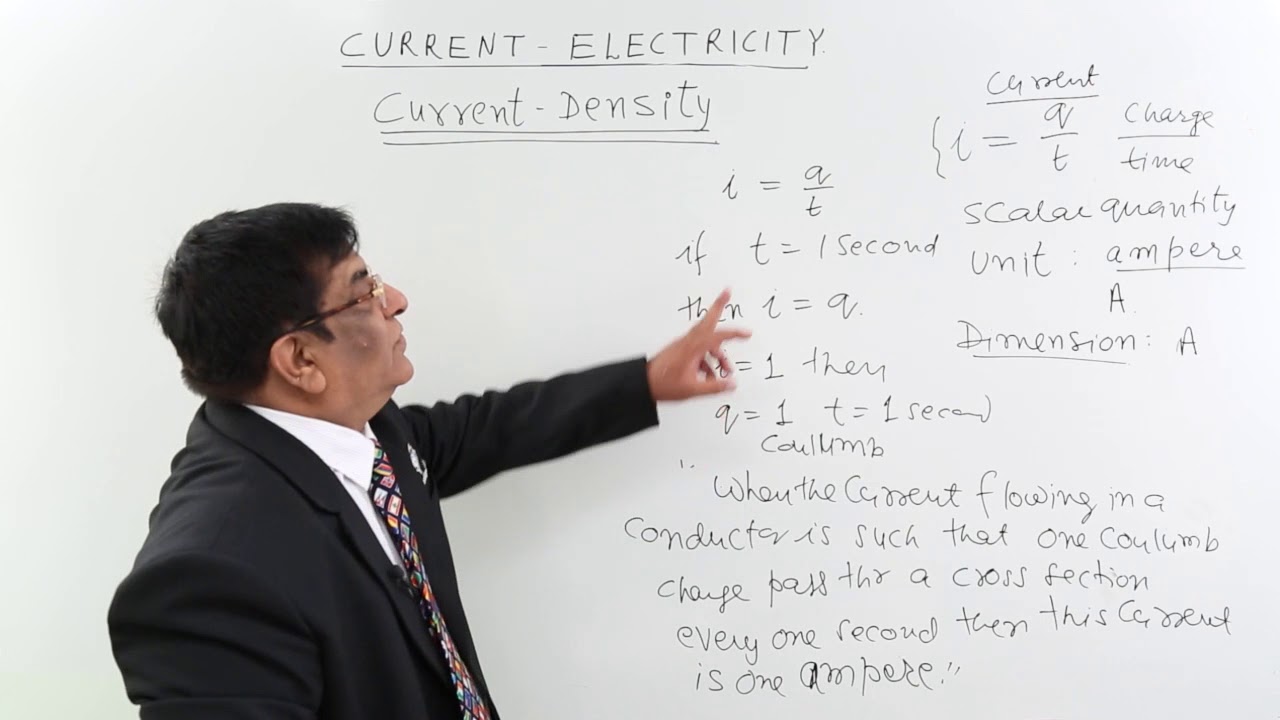 CURRENT - ELECTRICITY.
Current - Density
i = q/t
if t = 1 second
then i = q.
i = 1 then
q = 1 t = 1 second
Coulumb
"When the Current flowing in a
Conductor is such that one Coulumb
Charge pass thr a cross section
every one second then this Current
is one Ampere."
Current
{ i = q/t Charge/time
Scalar quantity
Unit : ampere
A.
Dimension : A